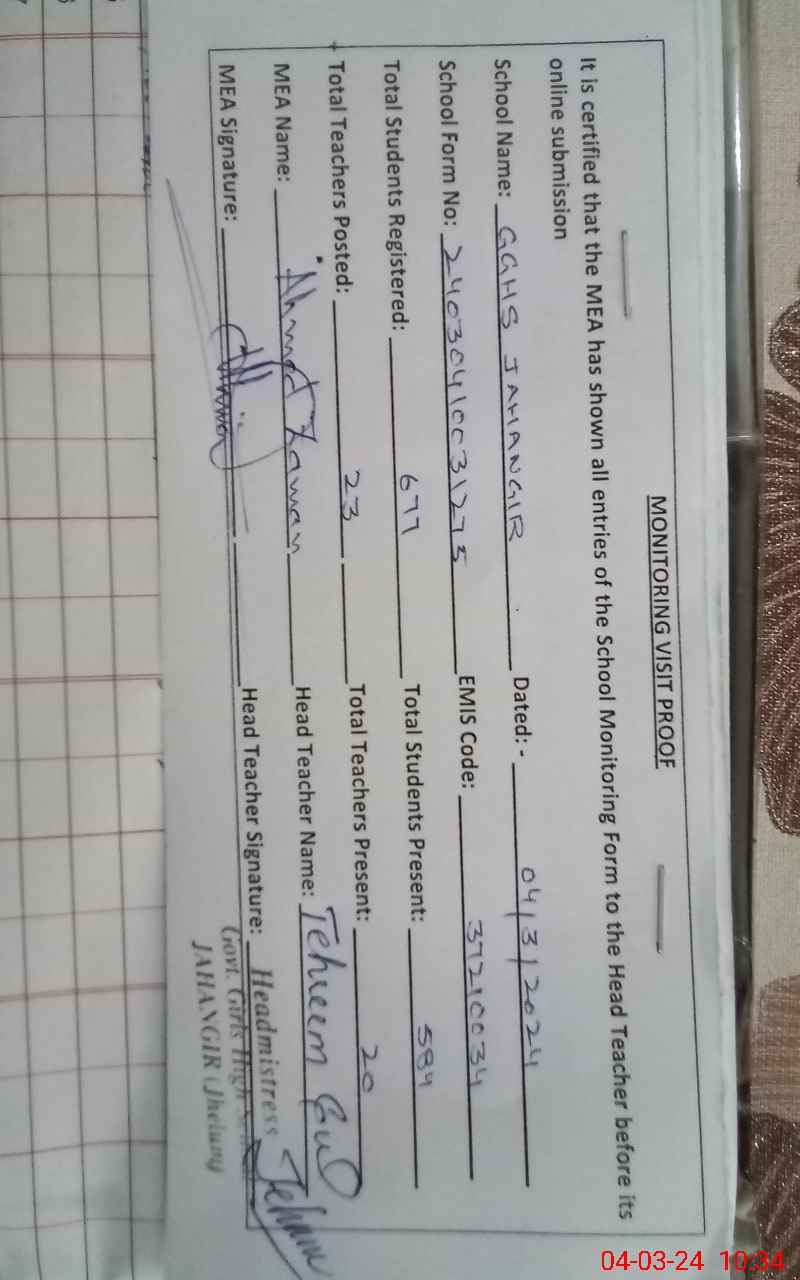 MONITORING VISIT PROOF
It is certified that the MEA has shown all entries of the School Monitoring Form to the Head Teacher before its
online submission
School Name: GGHS JAHANGIR Dated: - 04/3/2024
School Form No: 24030410031275 EMIS Code: 37210034
Total Students Registered: 677 Total Students Present: 584
Total Teachers Posted: 23 Total Teachers Present: 20
MEA Name: Ahmed Zaman Head Teacher Name: Tehreem Gul
MEA Signature: Head Teacher Signature:
Headmistress
Govt. Girls High
JAHANGIR (Jhelum)
04-03-24 10:34